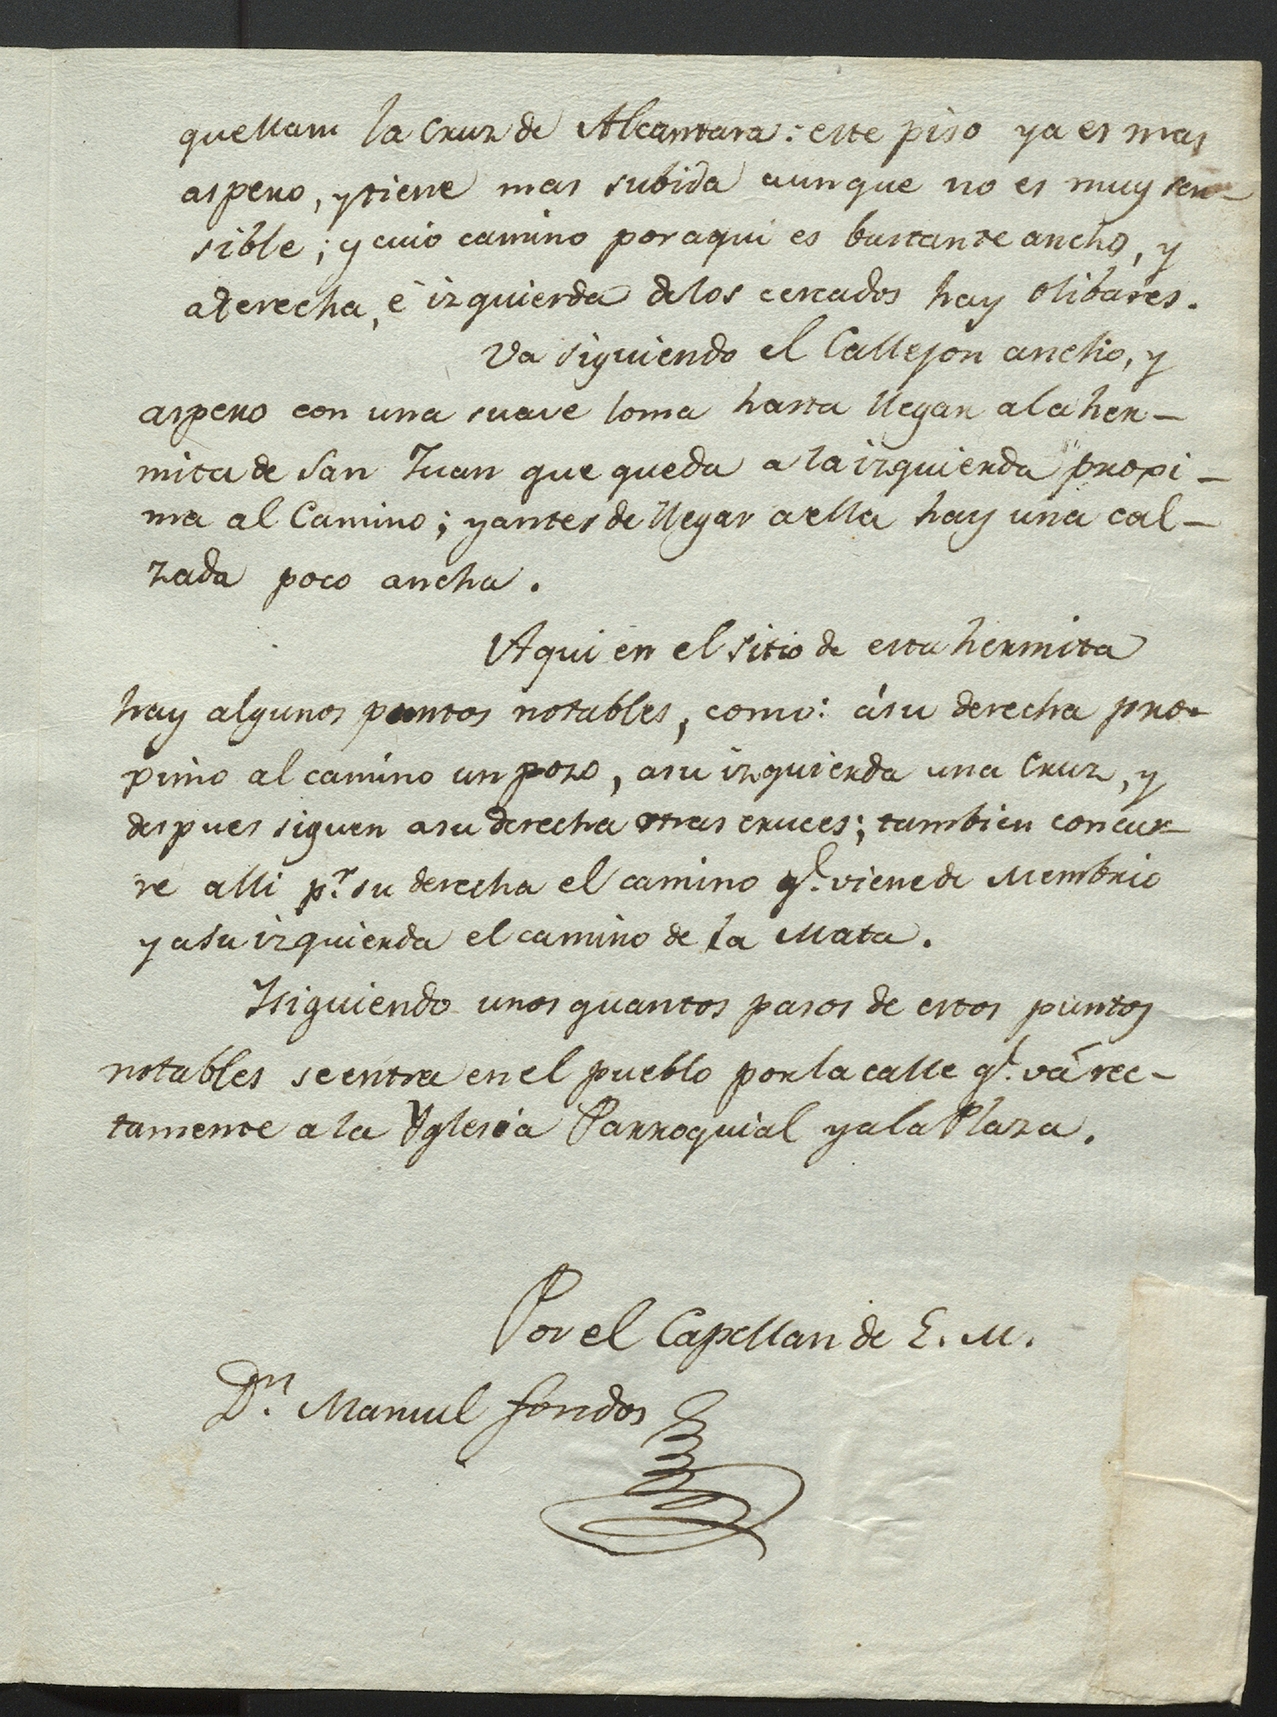 que llam la Cruz de Alcantara: este piso ya es mas
aspero, y tiene mas subida aunque no es muy sen-
sible; y cuio camino por aqui es bastante ancho, y
a derecha, e izquierda de los cercados hay olibares.
Va siguiendo el Callejon ancho, y
aspero con una suave loma hasta llegar a la her-
mita de San Juan que queda a la izquierda proxi-
ma al Camino; y antes de llegar a ella hay una cal-
zada poco ancha.
Aqui en el sitio de esta hermita
hay algunos puntos notables, como: á su derecha pro-
ximo al camino un pozo, a su izquierda una Cruz, y
despues siguen a su derecha otras cruces; tambien concur-
re alli p.r su derecha el camino q.e viene de Membrio
y a su izquierda el camino de la Mata.
Y siguiendo unos quantos pasos de estos puntos
notables se entra en el pueblo por la calle q.e vá rec-
tamente a la Yglesia Parroquial y a la Plaza.
Por el Capellan de E. M.
D.n Manuel